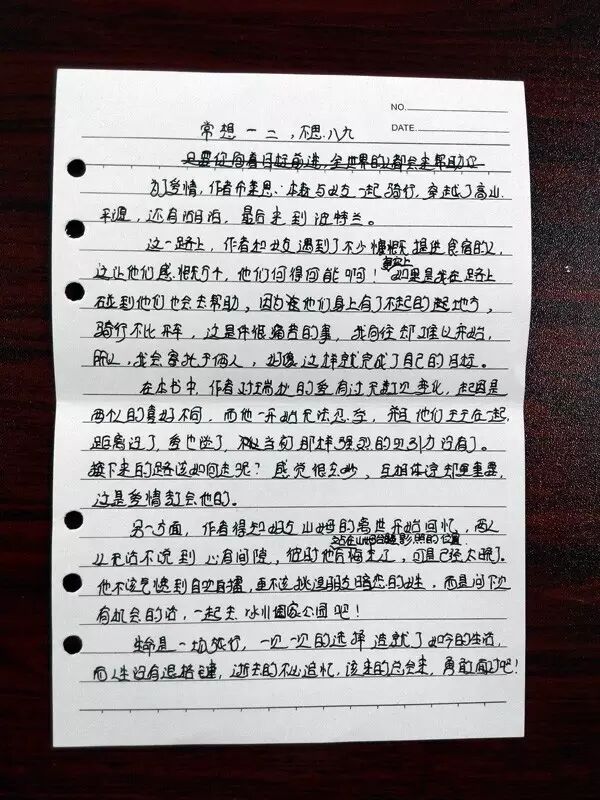 NO.
DATE.
常想一二，不思八九
只要你向着目标前进，全世界的人都会来帮助你
为了爱情，作者布莱恩·本森与女友一起骑行，穿越了高山
平源，还有湖泊，最后来到波特兰。
这一路上，作者和女友遇到了不少慷慨提供食宿的人
这让他们感慨万千，他们何得何能啊！事实上如果是我在路上
碰到他们也会去帮助，因为在他们身上有了不起的地方，
骑行不比开车，这是件很痛苦的事，我向往却难以开始，
所以，我会寄托于两人，好像这样就完成了自己的目标。
在本书中，作者对瑞秋的爱有过无数次变化，起因是
两个人的喜好不同，而他一开始无法忍受，并且他们天天在一起，
距离近了，爱也淡了，不如当初那样强烈的吸引力没有了。
接下来的路该如何走呢？感觉很玄妙，互相体谅却更重要，
这是爱情教会他的。
另一方面，作者得知好友山姆的离世开始回忆，两人
站在山姆合影照的位置
从无话不说到心有间隙，彼时他后悔来了，可是已经太晚了。
他不该气愤到自吹自擂，更不该挑逗朋友暗恋的女生，而是问下次
有机会的话，一起去冰川国家公园吧！
生命是一场旅行，一次一次的选择造就了如今的生活，
而人生没有退格键，逝去的不必追忆，该来的总会来，勇敢面对吧！